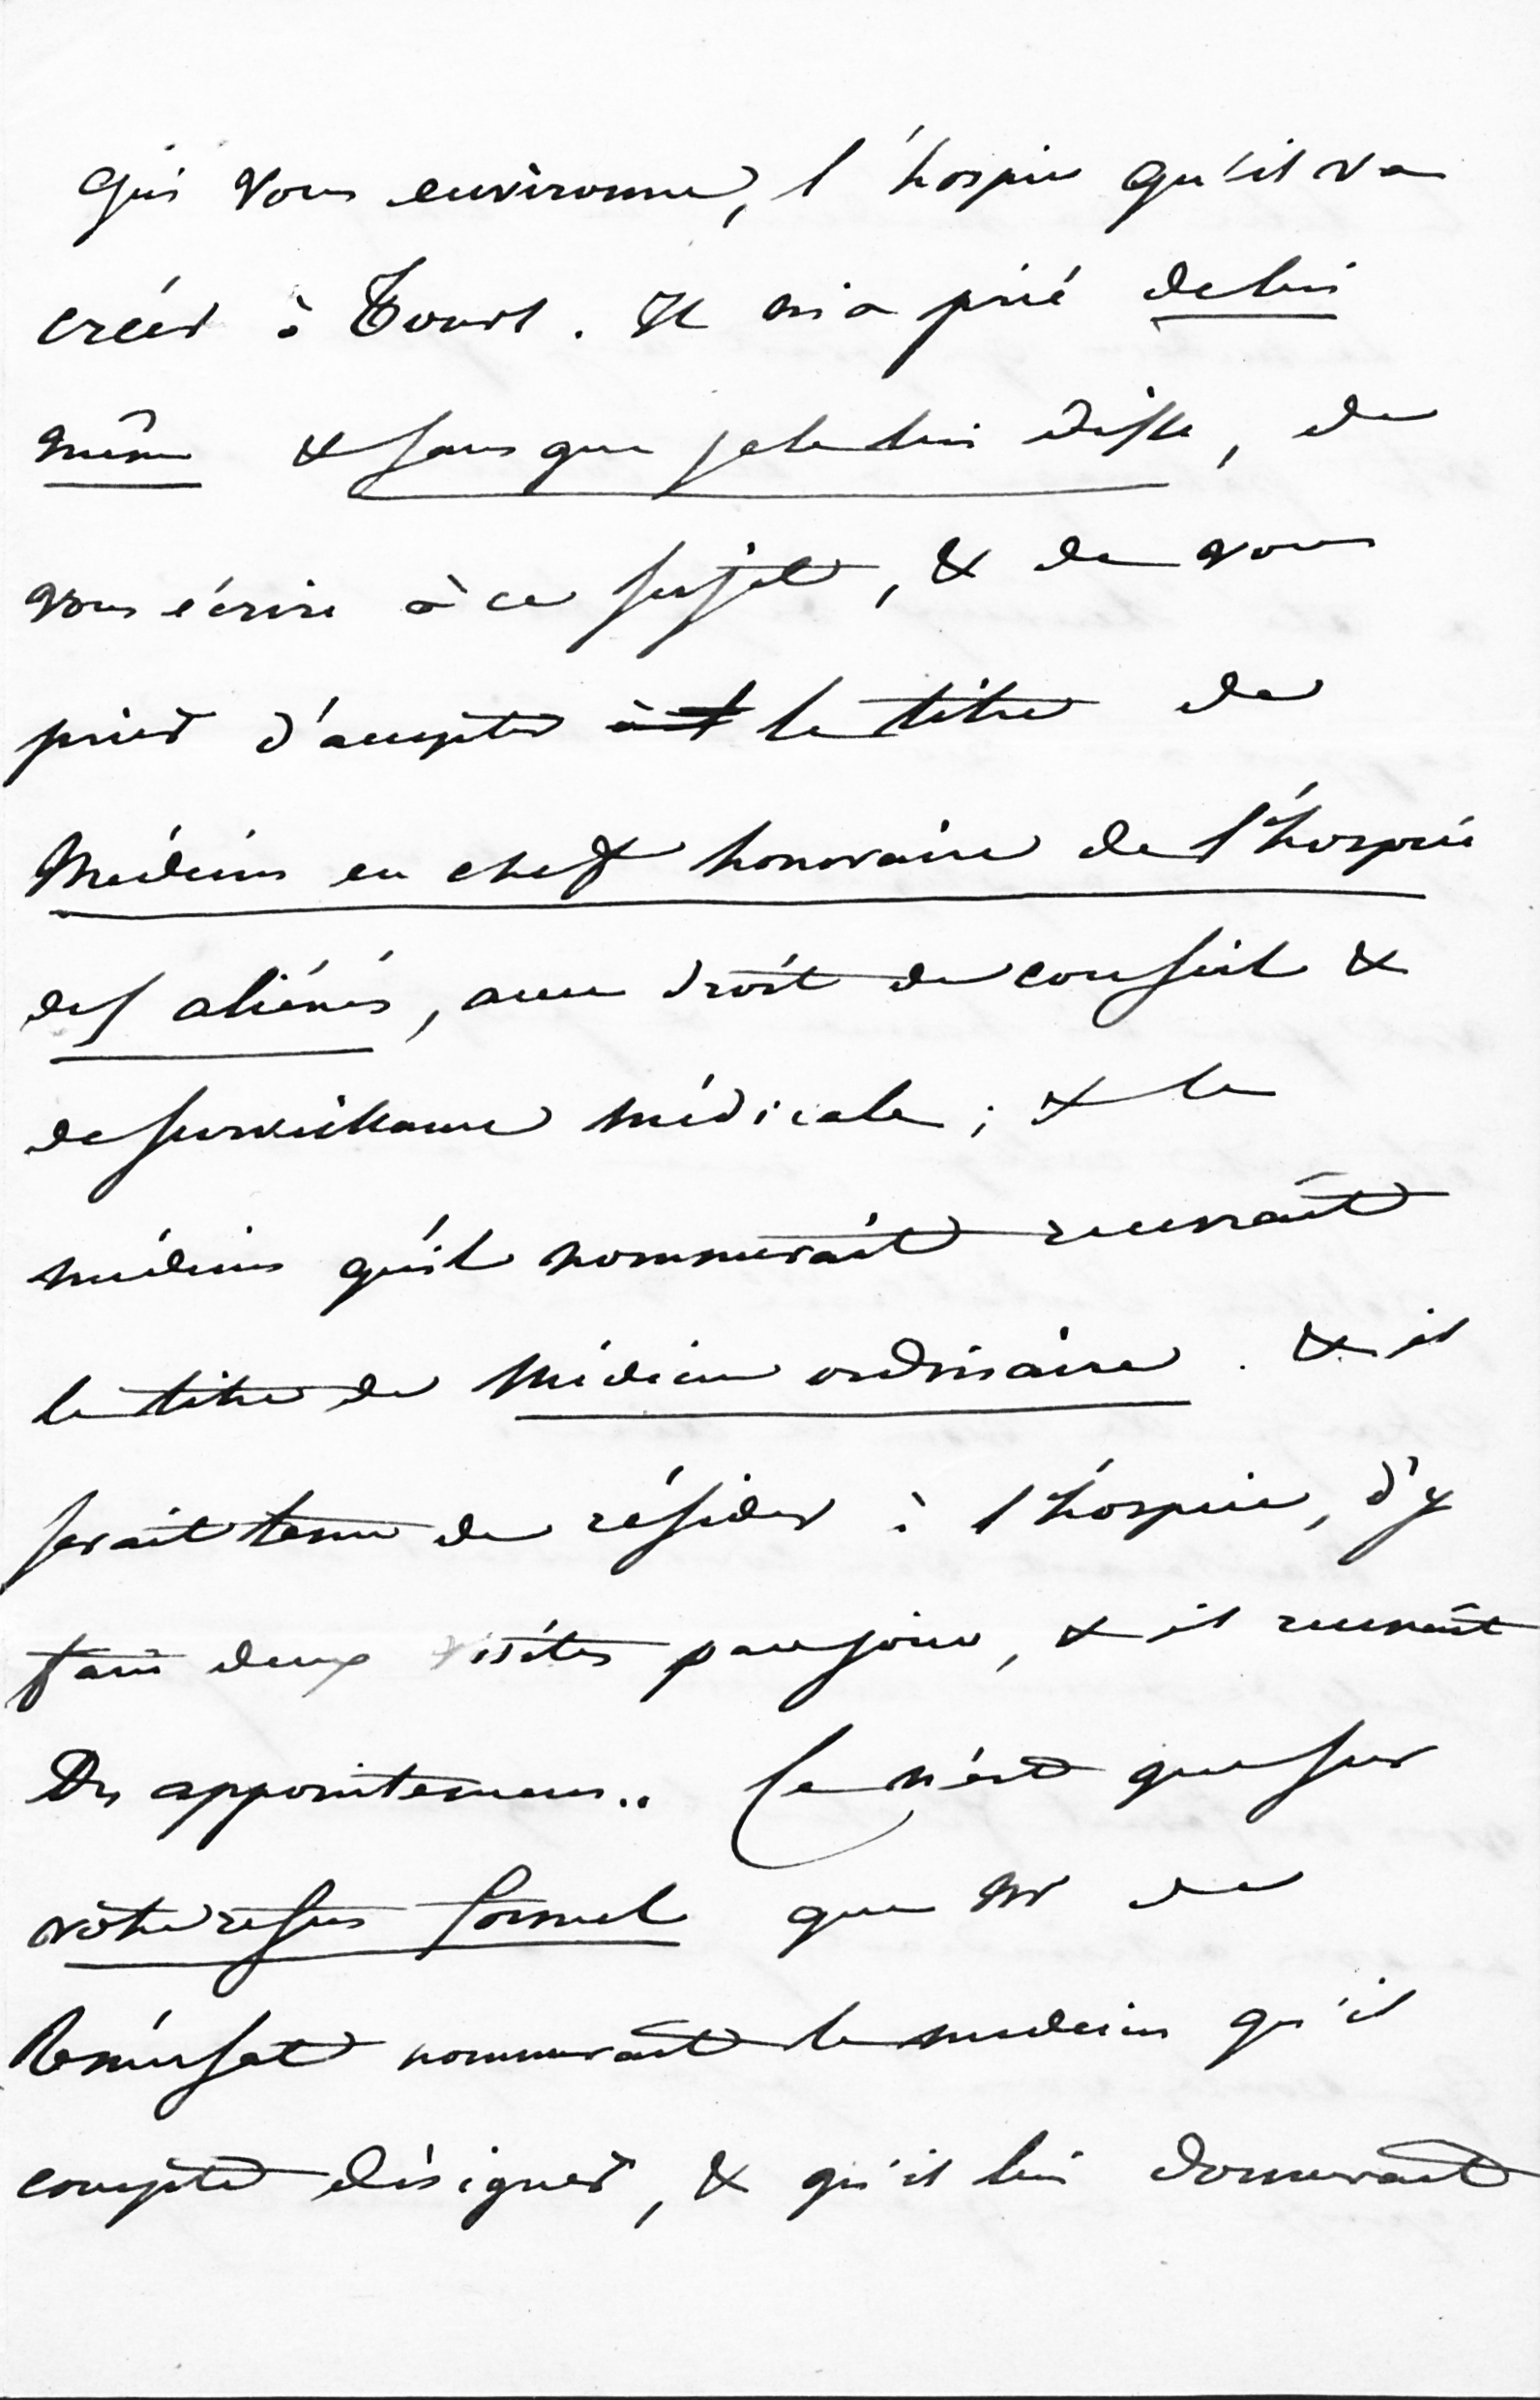 qui vous environne, l'hospice qu'il va
créer à Tours. Il m'a prié de lui
même & sans que je le lui disse, de
vous écrire à ce sujet, & de vous
prier d'accepter le titre de
Médecin en chef honoraire de l'hospice
des aliénés, avec droit de conseil &
de surveillance médicale ; & le
médecin qu'il nommerait recevrait
le titre de Médecin ordinaire. & il
serait tenu de résider à l'hospice, d'y
faire deux visites par jour, & il recevrait
Des appointemens.. Ce n'est que sur
votre refus formel que Mr de
Rémusat nommerait le médecin qu'il
compte désigner, & qu'il lui donnerait